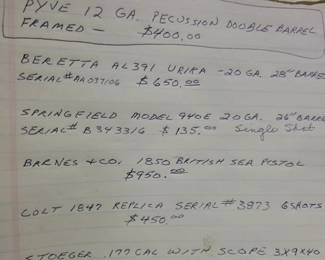 PYVE 12 GA. PECUSSION DOUBLE BARREL
FRAMED — $400.00
BERETTA AL391 URIKA -20 GA. 28" BARREL
SERIAL# AA037106 $650.00
SPRINGFIELD MODEL 940E 20 GA. 26" BARREL
SERIAL# B343316 $135.00 Single Shot
BARNES + CO. 1850 BRITISH SEA PISTOL
$950.00
COLT 1847 REPLICA SERIAL #3973 6 SHOTS
$450.00
STOEGER .177 CAL WITH SCOPE 3X9X40